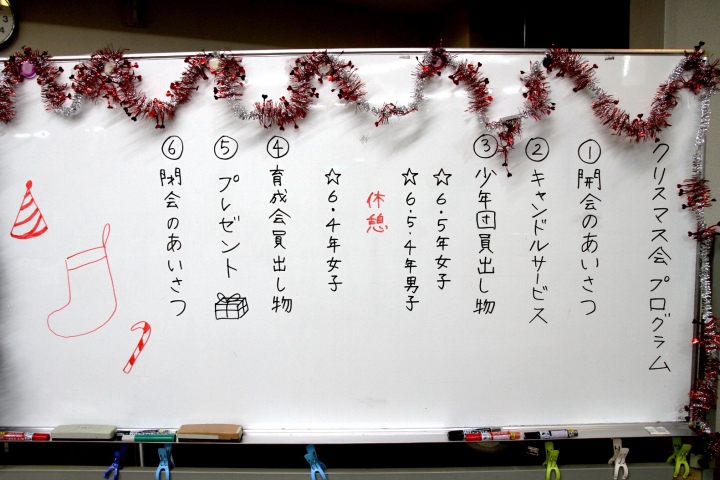 クリスマス会 プログラム
①開会のあいさつ
②キャンドルサービス
③少年団員出し物
☆6・5年女子
☆6・5・4年男子
休憩
☆6・4年女子
④育成会員出し物
⑤プレゼント
⑥閉会のあいさつ